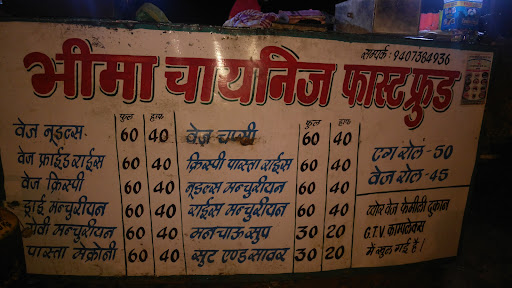 सम्पर्क : 9407364936
भीमा चायनिज फास्टफुड
फुल हाफ
वेज नूडल्स 60 40
वेज फ्राईड राईस 60 40
वेज क्रिस्पी 60 40
ड्राई मन्चुरीयन 60 40
ग्रेवी मन्चुरीयन 60 40
पास्ता मेक्रोनी 60 40
फुल हाफ
वेज चाप्सी 60 40
क्रिस्पी पास्ता राईस 60 40
नूडल्स मन्चुरीयन 60 40
राईस मन्चुरीयन 60 40
मनचाऊ सुप 30 20
सुट एण्ड सावर 30 20
एग रोल - 50
वेज रोल - 45
प्योर वेज फेमीली दुकान
G.T.V. काम्पलेक्स
में खुल गई है।